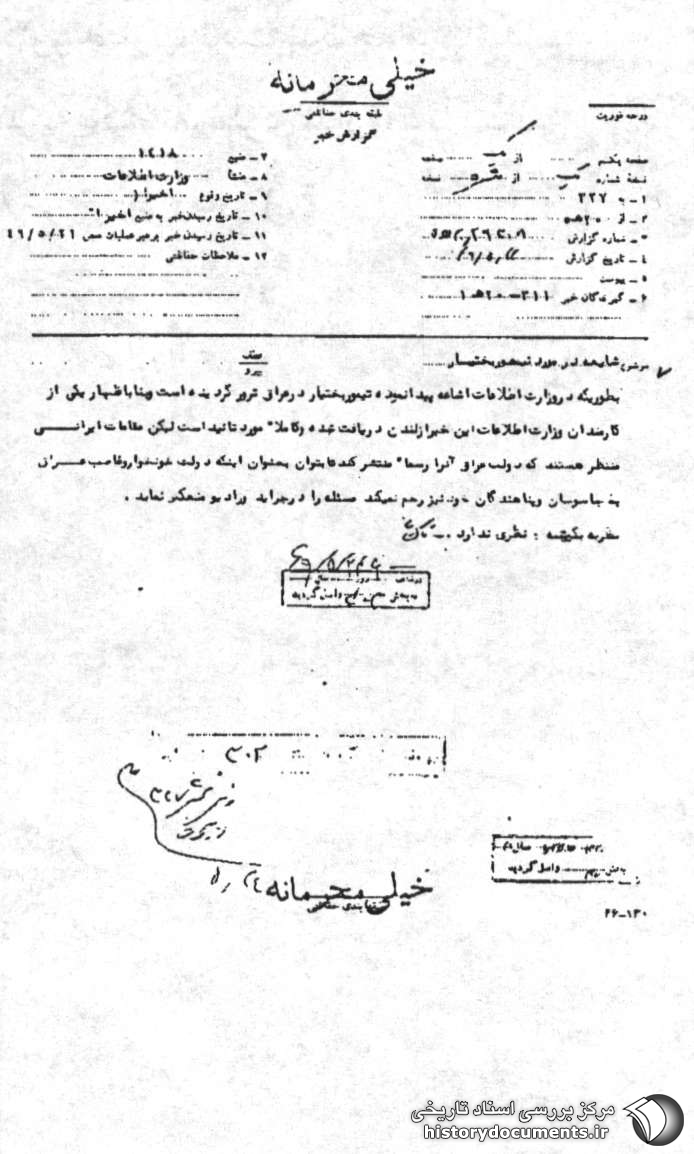 خیلی محرمانه
طبقه بندی حفاظتی
گزارش خبر
درجه فوریت
صفحه یکم از یک صفحه
نسخه شماره از نسخه
۱ – به ۳۲۷
۲ – از ۲۰ هـ ۵
۳ – شماره گزارش
۴ – تاریخ گزارش
۵ – پیوست
۶ – گیرندگان خبر ۳۱۱ – ۲۰ هـ ۱
۷ – منبع ۱۴۱۸
۸ – منشأ وزارت اطلاعات
۹ – تاریخ وقوع اخیرا
۱۰ – تاریخ رسیدن خبر به منبع اخیرا
۱۱ – تاریخ رسیدن خبر برهبر عملیات ۴۹/۵/۲۱
۱۲ – ملاحظات حفاظتی
موضوع شایعه در مورد تیمور بختیار
بطوریکه در وزارت اطلاعات اشاعه پیدا نموده تیمور بختیار در عراق ترور گردیده است و بنا باظهار یکی از
کارمندان وزارت اطلاعات این خبر از لندن دریافت شده و کاملا" مورد تائید است لیکن مقامات ایرانی
منتظر هستند که دولت عراق آنرا رسما" منتشر کند تا بتوان بعنوان اینکه دولت خونخوار و غاصب عراق
به جاسوسان و پناهندگان خود نیز رحم نمیکند مسئله را در جراید و رادیو منعکس نماید .
نظریه یکشنبه : نظری ندارد .
واصل گردید
۳۰۲
۳۲۷
واصل گردید
خیلی محرمانه
طبقه بندی حفاظتی
۲۶–۱۳۰
مرکز بررسی اسناد تاریخی
historydocuments.ir